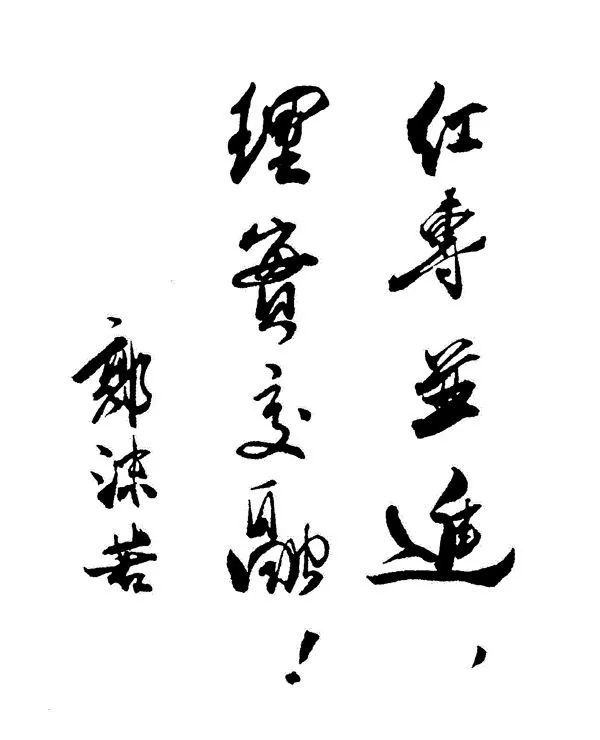 红專並進、
理實交融！
郭沫若